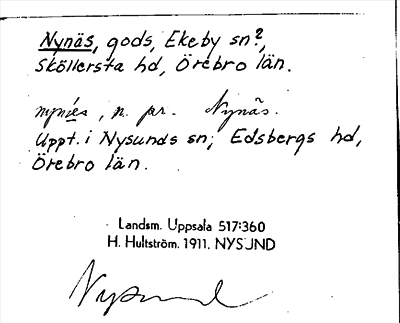 Nynäs, gods, Ekeby sn?,
Sköllersta hd, Örebro län.
nynǽs, n. pr. Nynäs.
Uppt. i Nysunds sn, Edsbergs hd,
Örebro län.
Landsm. Uppsala 517:360
H. Hultström. 1911. NYSUND
Nysund